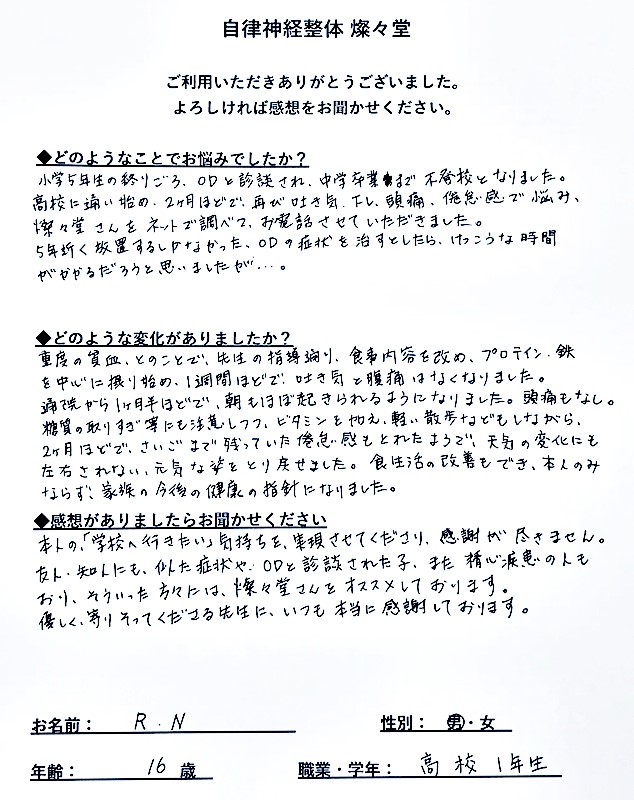 自律神経整体 燦々堂
ご利用いただきありがとうございました。
よろしければ感想をお聞かせください。
◆どのようなことでお悩みでしたか？
小学5年生の終りごろ、ODと診談され、中学卒業まで不登校となりました。
高校に通い始め、2ヶ月ほどで、再び吐き気、下し、頭痛、倦怠感で悩み、
燦々堂さんをネットで調べて、お電話させていただきました。
5年近く放置するしかなかった、ODの症状を治すとしたら、けっこうな時間
がかかるだろうと思いましたが…。
◆どのような変化がありましたか？
重度の貧血、とのことで、先生の指導通り、食事内容を改め、プロテイン、鉄
を中心に摂り始め、1週間ほどで、吐き気と腹痛はなくなりました。
通院から1ヶ月半ほどで、朝もほぼ起きられるようになりました。頭痛もなし。
糖質の取りすぎ等にも注意しつつ、ビタミンを加え、軽い散歩などもしながら、
2ヶ月ほどで、さいごまで残っていた倦怠感もとれたようで、天気の変化にも
左右されない、元気な姿をとり戻せました。食生活の改善もでき、本人のみ
ならず、家族の今後の健康の指針になりました。
◆感想がありましたらお聞かせください
本人の、「学校へ行きたい」気持ちを、実現させてくださり、感謝が尽きません。
友人・知人にも、似た症状や、ODと診談された子、また精心疾患の人も
おり、そういった方々には、燦々堂さんをオススメしております。
優しく、寄りそってくださる先生に、いつも本当に感謝しております。
お名前： R.N 性別： 男・女
年齢： 16 歳 職業・学年： 高校1年生